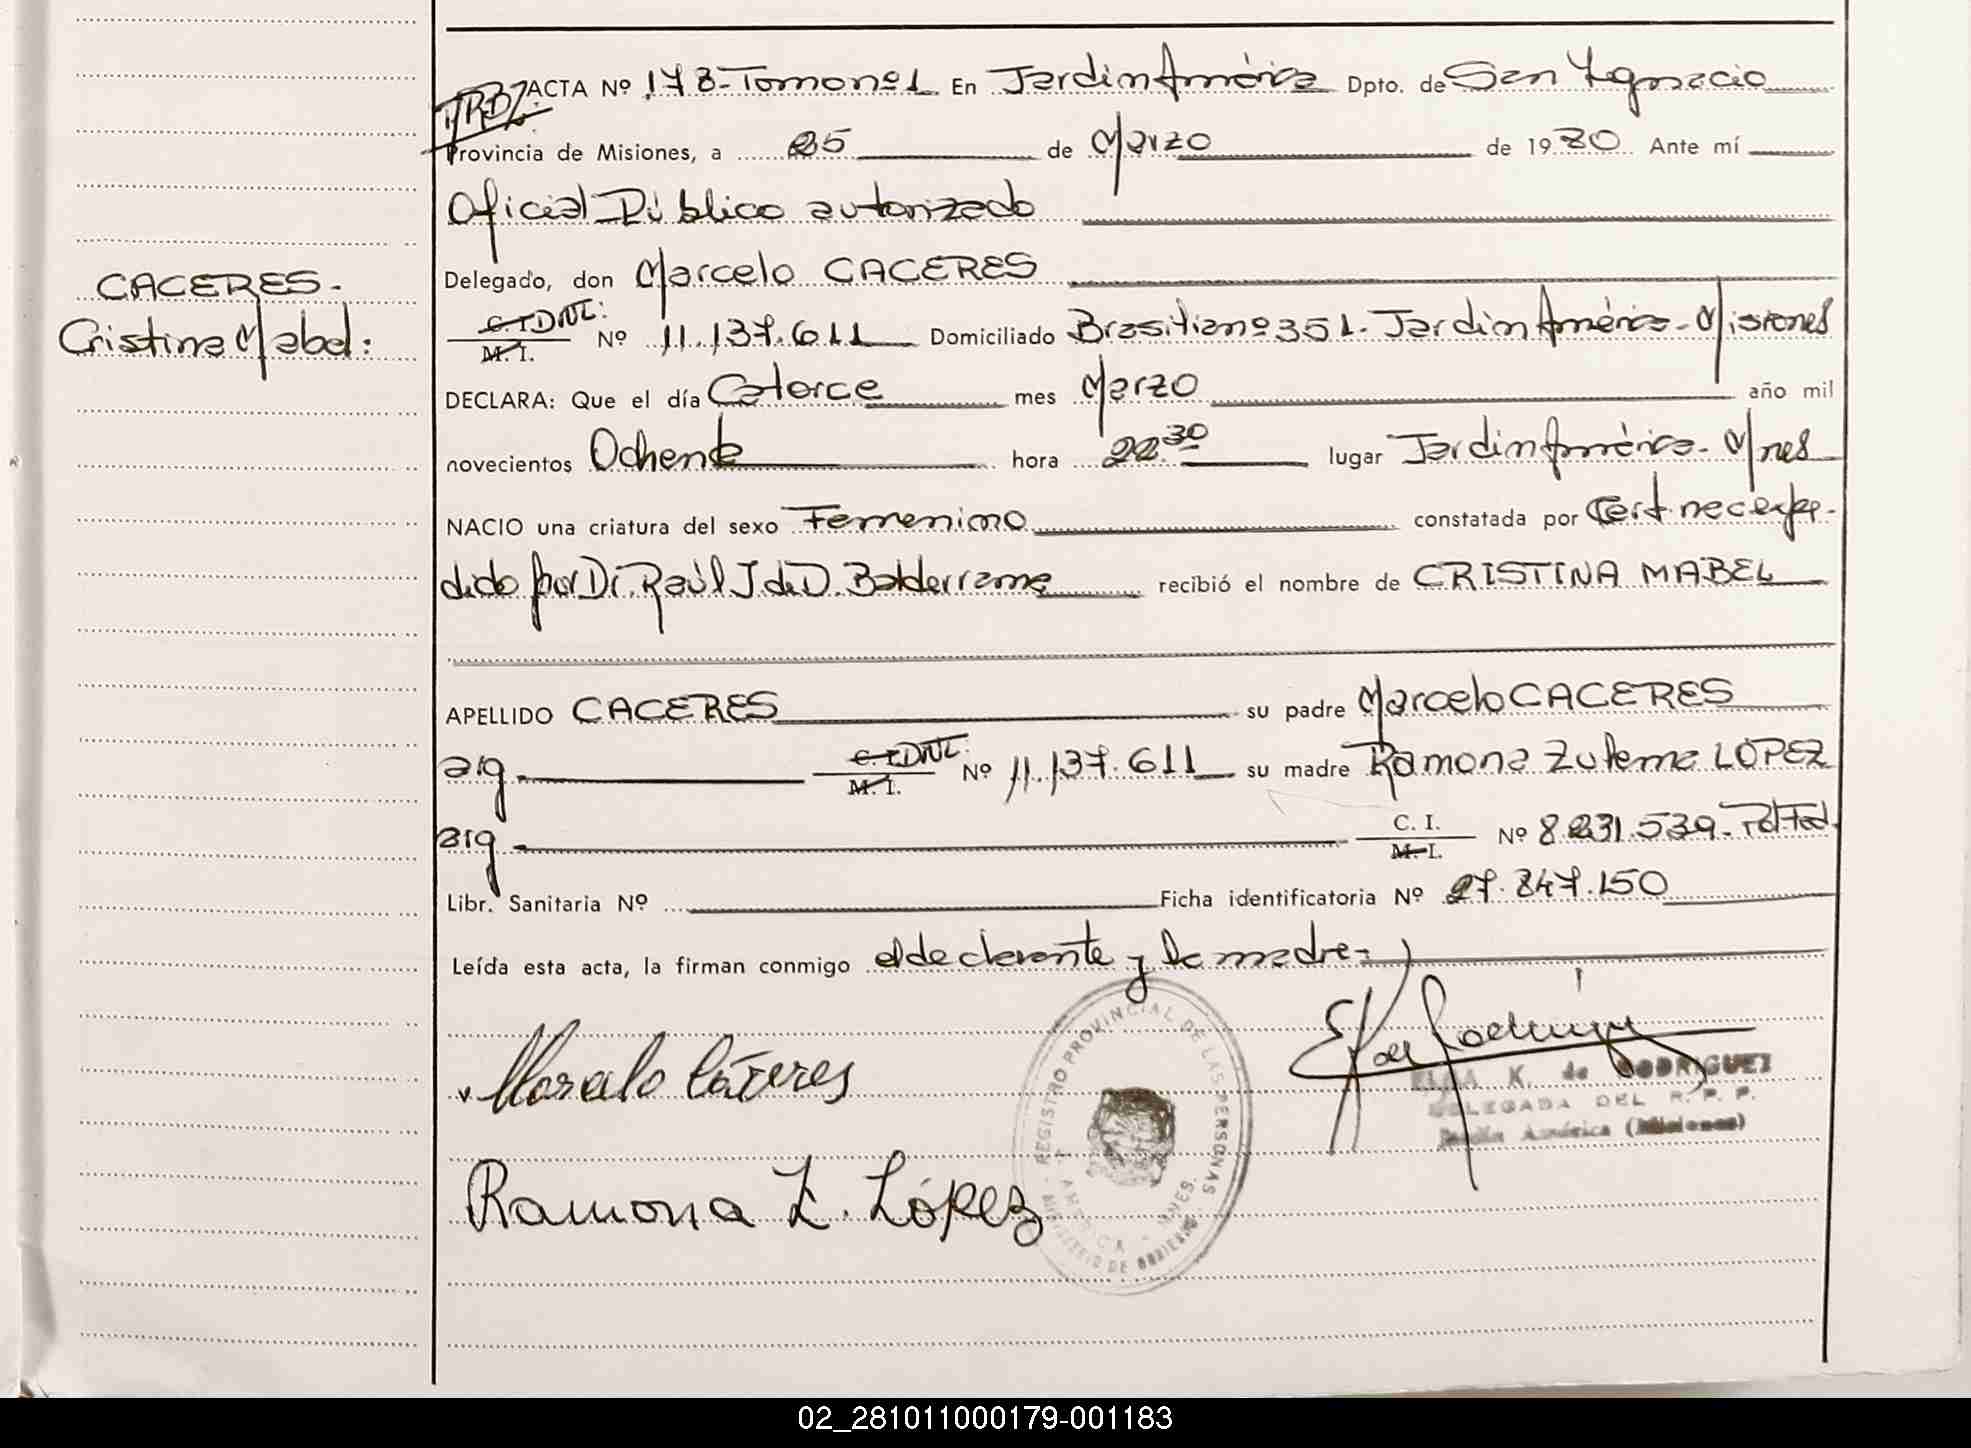 ACTA Nº 178-Tomo nº1 En Jardin América Dpto. de San Ignacio
Provincia de Misiones, a 25 de Marzo de 1980 Ante mí
Oficial Público autorizado
Delegado, don Marcelo CACERES
CACERES.
Cristina Mabel:
C.I. DNI: M. I. Nº 11.137.611 Domiciliado Brasilia nº 351. Jardin América - Misiones
DECLARA: Que el día Catorce mes Marzo año mil
novecientos Ochenta hora 22.30 lugar Jardin América - Mnes
NACIO una criatura del sexo Femenino constatada por Cert. nac. expe-
dido por Dr. Raúl J. de D. Balderrama recibió el nombre de CRISTINA MABEL
APELLIDO CACERES su padre Marcelo CACERES
arg C.I. DNI: M. I. Nº 11.137.611 su madre Ramona Zulema LOPEZ
arg C. I. M. I. Nº 8.231.539 - Pol Fed.
Libr. Sanitaria Nº Ficha identificatoria Nº 27.847.150
Leída esta acta, la firman conmigo el declarante y la madre-
Marcelo Cáceres
Ramona Z. López
REGISTRO PROVINCIAL DE LAS PERSONAS
AMERICA - MNES.
MINISTERIO DE GOBIERNO
ELSA K. de RODRIGUEZ
DELEGADA DEL R. P. P.
Jardín América (Misiones)
02_281011000179-001183